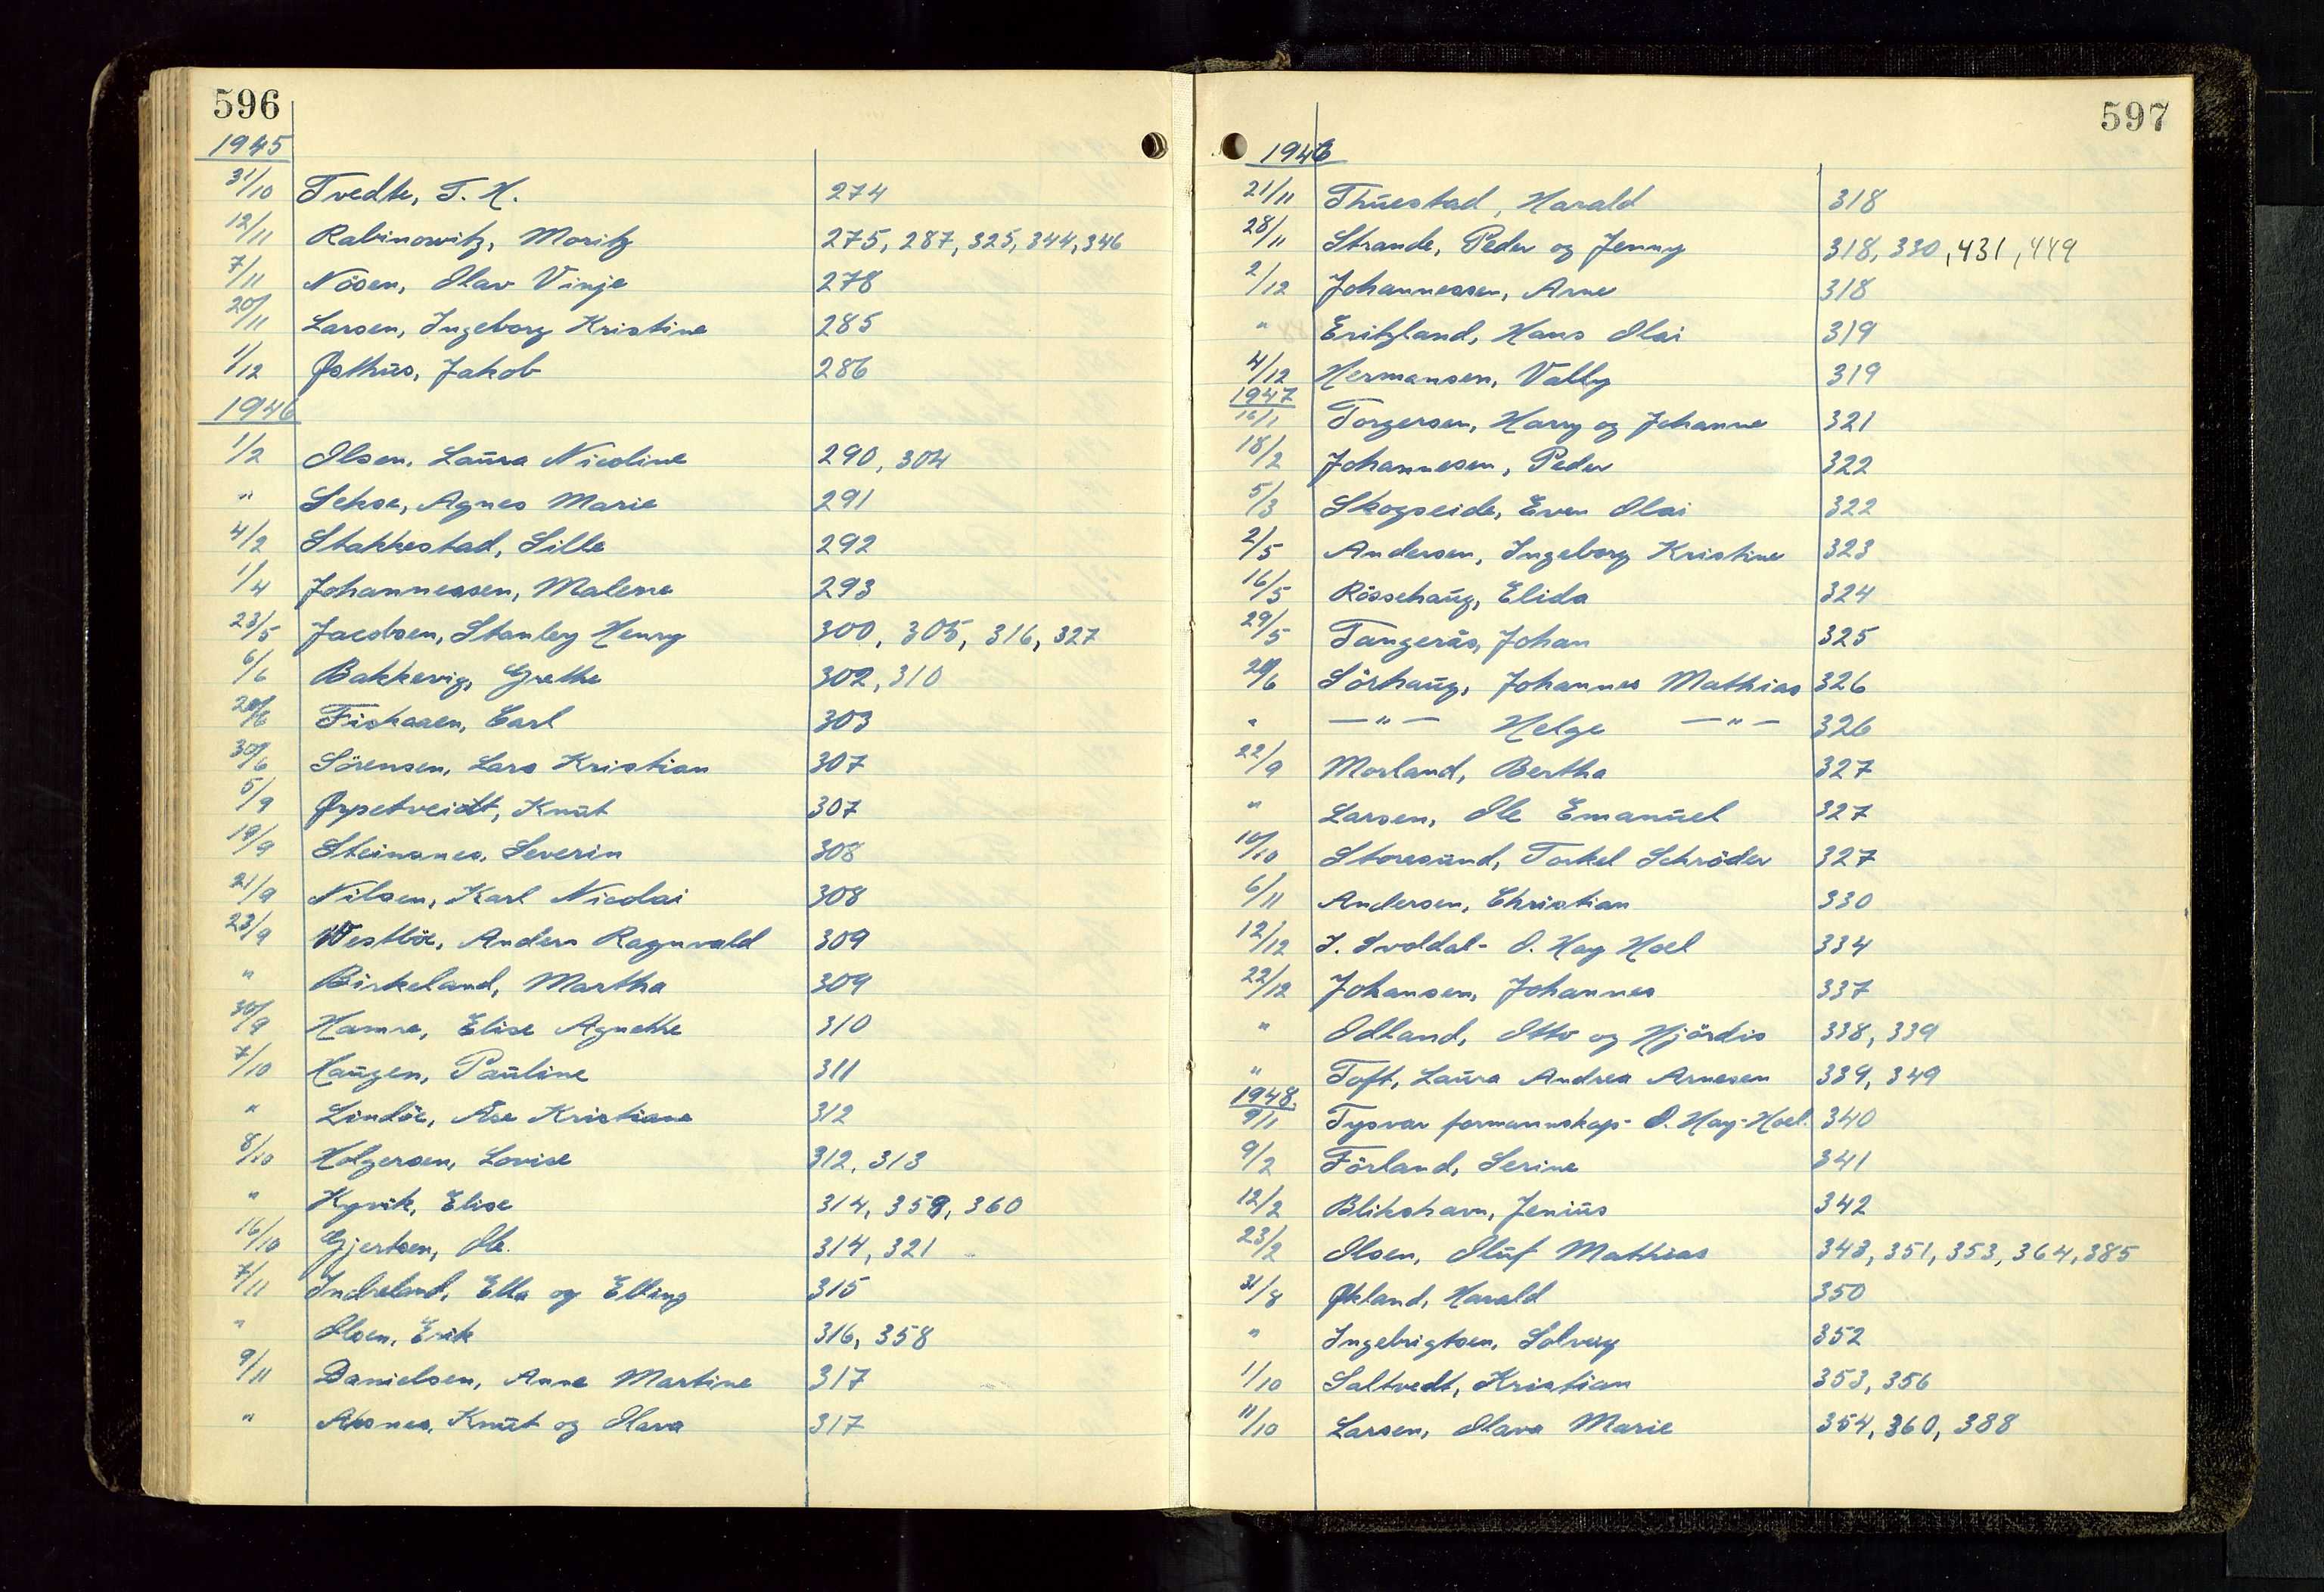 596
1945
31/10 Tvedte, T. H. 274
12/11 Rabinowitz, Moritz 275, 287, 325, 344, 346
7/11 Nösen, Olav Vinje 278
20/11 Larsen, Ingeborg Kristine 285
1/12 Østhus, Jakob 286
1946
1/2 Olsen, Laura Nicoline 290, 304
" Sekse, Agnes Marie 291
4/2 Stakkestad, Sille 292
1/4 Johannessen, Malene 293
23/5 Jacobsen, Stanley Henry 300, 305, 316, 327
6/6 Bakkevig, Grethe 302, 310
20/6 Fiskaaen, Carl 303
30/6 Sörensen, Lars Kristian 307
5/9 Ørpetveidt, Knut 307
19/9 Steinsnes, Severin 308
21/9 Nilsen, Karl Nicolai 308
23/9 Westböe, Anders Ragnvald 309
" Birkeland, Martha 309
30/9 Hamre, Elise Agnethe 310
7/10 Haugen, Pauline 311
" Lindöe, Åse Kristiane 312
8/10 Holgersen, Lovise 312, 313
" Kyvik, Elise 314, 359, 360
16/10 Gjertsen, Ole. 314, 321
7/11 Indreland, Ella og Elling 315
" Olsen, Erik 316, 358
9/11 Danielsen, Anne Martine 317
" Alsnes, Knut og Olava 317
597
1946
21/11 Thuestad, Harald 318
28/11 Strande, Peder og Jenny 318, 330, 431, 449
2/12 Johannessen, Arne 318
" Eritzland, Hans Olai 319
4/12 Hermansen, Vally 319
1947
16/1 Torgersen, Harry og Johanne 321
18/2 Johannesen, Peder 322
5/3 Skogseide, Even Olai 322
2/5 Andersen, Ingeborg Kristine 323
16/5 Rössehaug, Elida 324
29/5 Tangerås, Johan 325
20/6 Sörhaug, Johannes Mathias 326
" — " — Helge — " — 326
22/9 Morland, Bertha 327
" Larsen, Ole Emanuel 327
10/10 Storesund, Torkel Schröder 327
6/11 Andersen, Christian 330
12/12 I. Svoldal - O. Hay Hoel 334
22/12 Johansen, Johannes 337
" Odland, Otto og Hjördis 338, 339
" Toft, Laura Andrea Arnesen 339, 349
1948.
9/1 Tysvær formannskap - O. Hay-Hoel. 340
9/2 Förland, Serine 341
12/2 Blikshavn, Jenius 342
23/2 Olsen, Oluf Mathias 343, 351, 353, 364, 385
31/8 Økland, Harald 350
" Ingebrigtsen, Solveig 352
1/10 Saltvedt, Kristian 353, 356
11/10 Larsen, Olava Marie 354, 360, 388